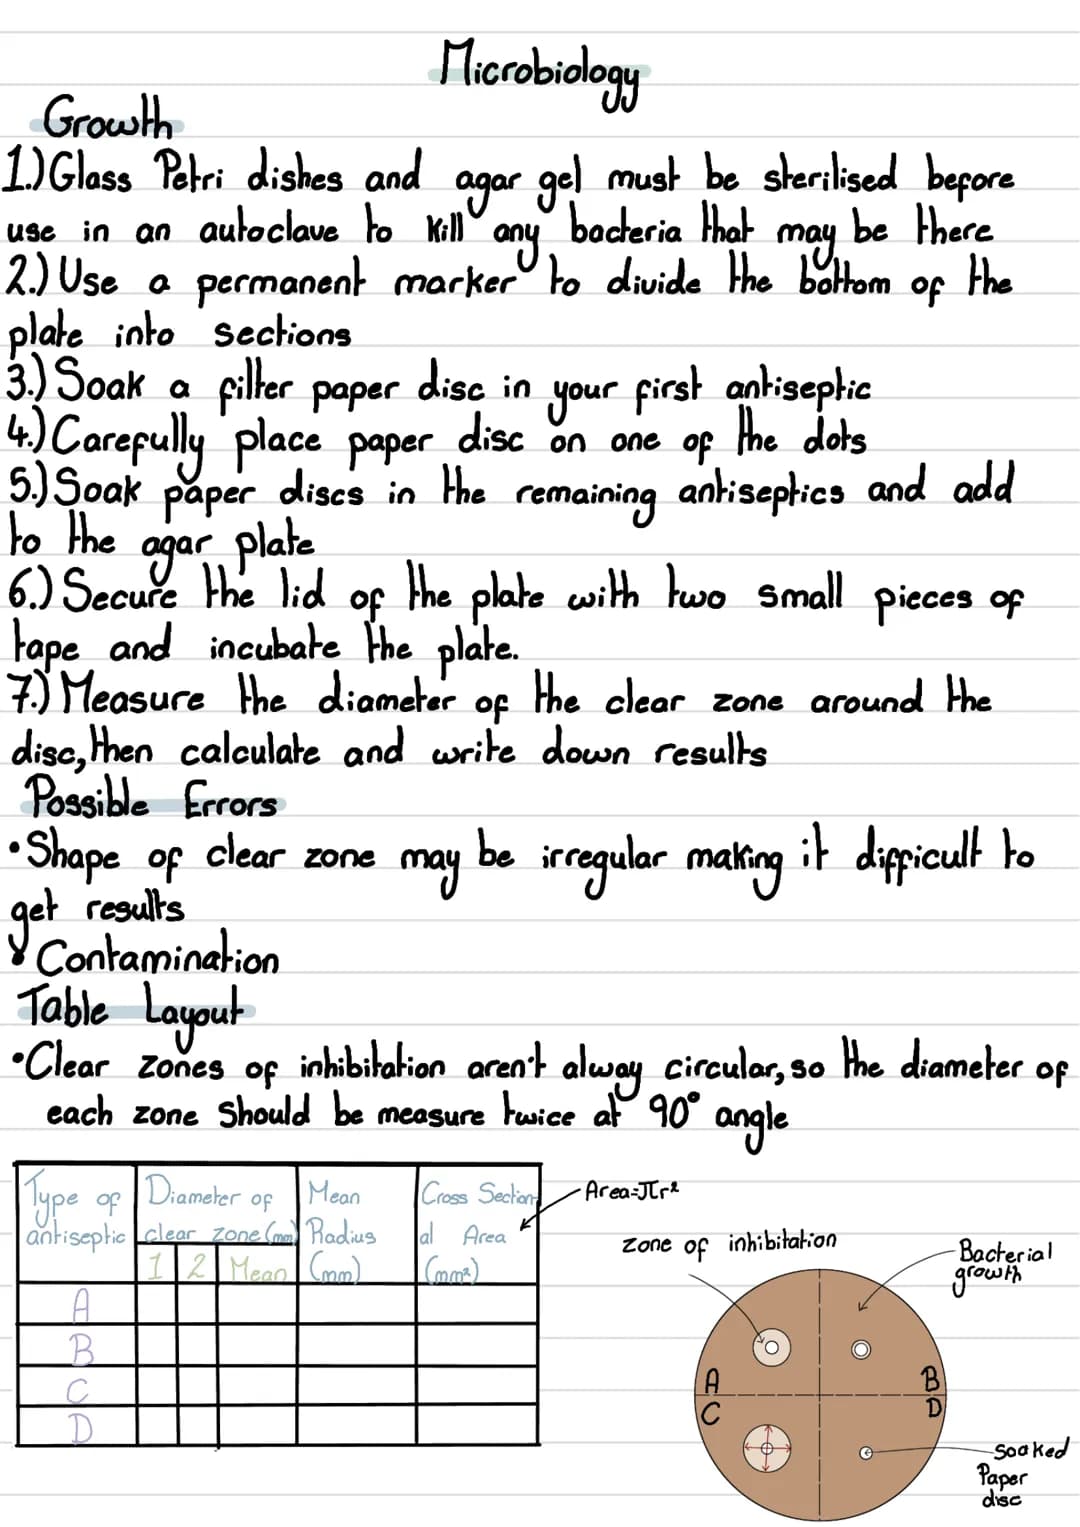 Microbiology
Growth
1.) Glass Petri dishes and agar gel must be sterilised before
use in an autoclave to kill any bacteria that may be there
2.) Use a permanent marker to divide the bottom of the
plate into sections
3.) Soak a filter paper disc in your first antiseptic
4.) Carefully place paper disc on one of the dots
5.) Soak paper discs in the remaining antiseptics and add
to the agar plate
6.) Secure the lid of the plate with two small pieces of
tape and incubate the plate.
7.) Measure the diameter of the clear zone around the
disc, then calculate and write down results
Possible Errors
•Shape of clear zone may be irregular making it difficult to
get results
•Contamination
Table Layout
•Clear zones of inhibitation aren't alway circular, so the diameter of
each zone should be measure twice at 90° angle
Type of
antiseptic
Diameter of
clear zone (mm)
1 2 Mean
Mean
Radius
(mm)
Cross Section-
al Area
(mm²)
Area=πr²
A
B
C
D
zone of inhibitation
Bacterial
growth
A
B
C
D
Soaked
Paper
disc